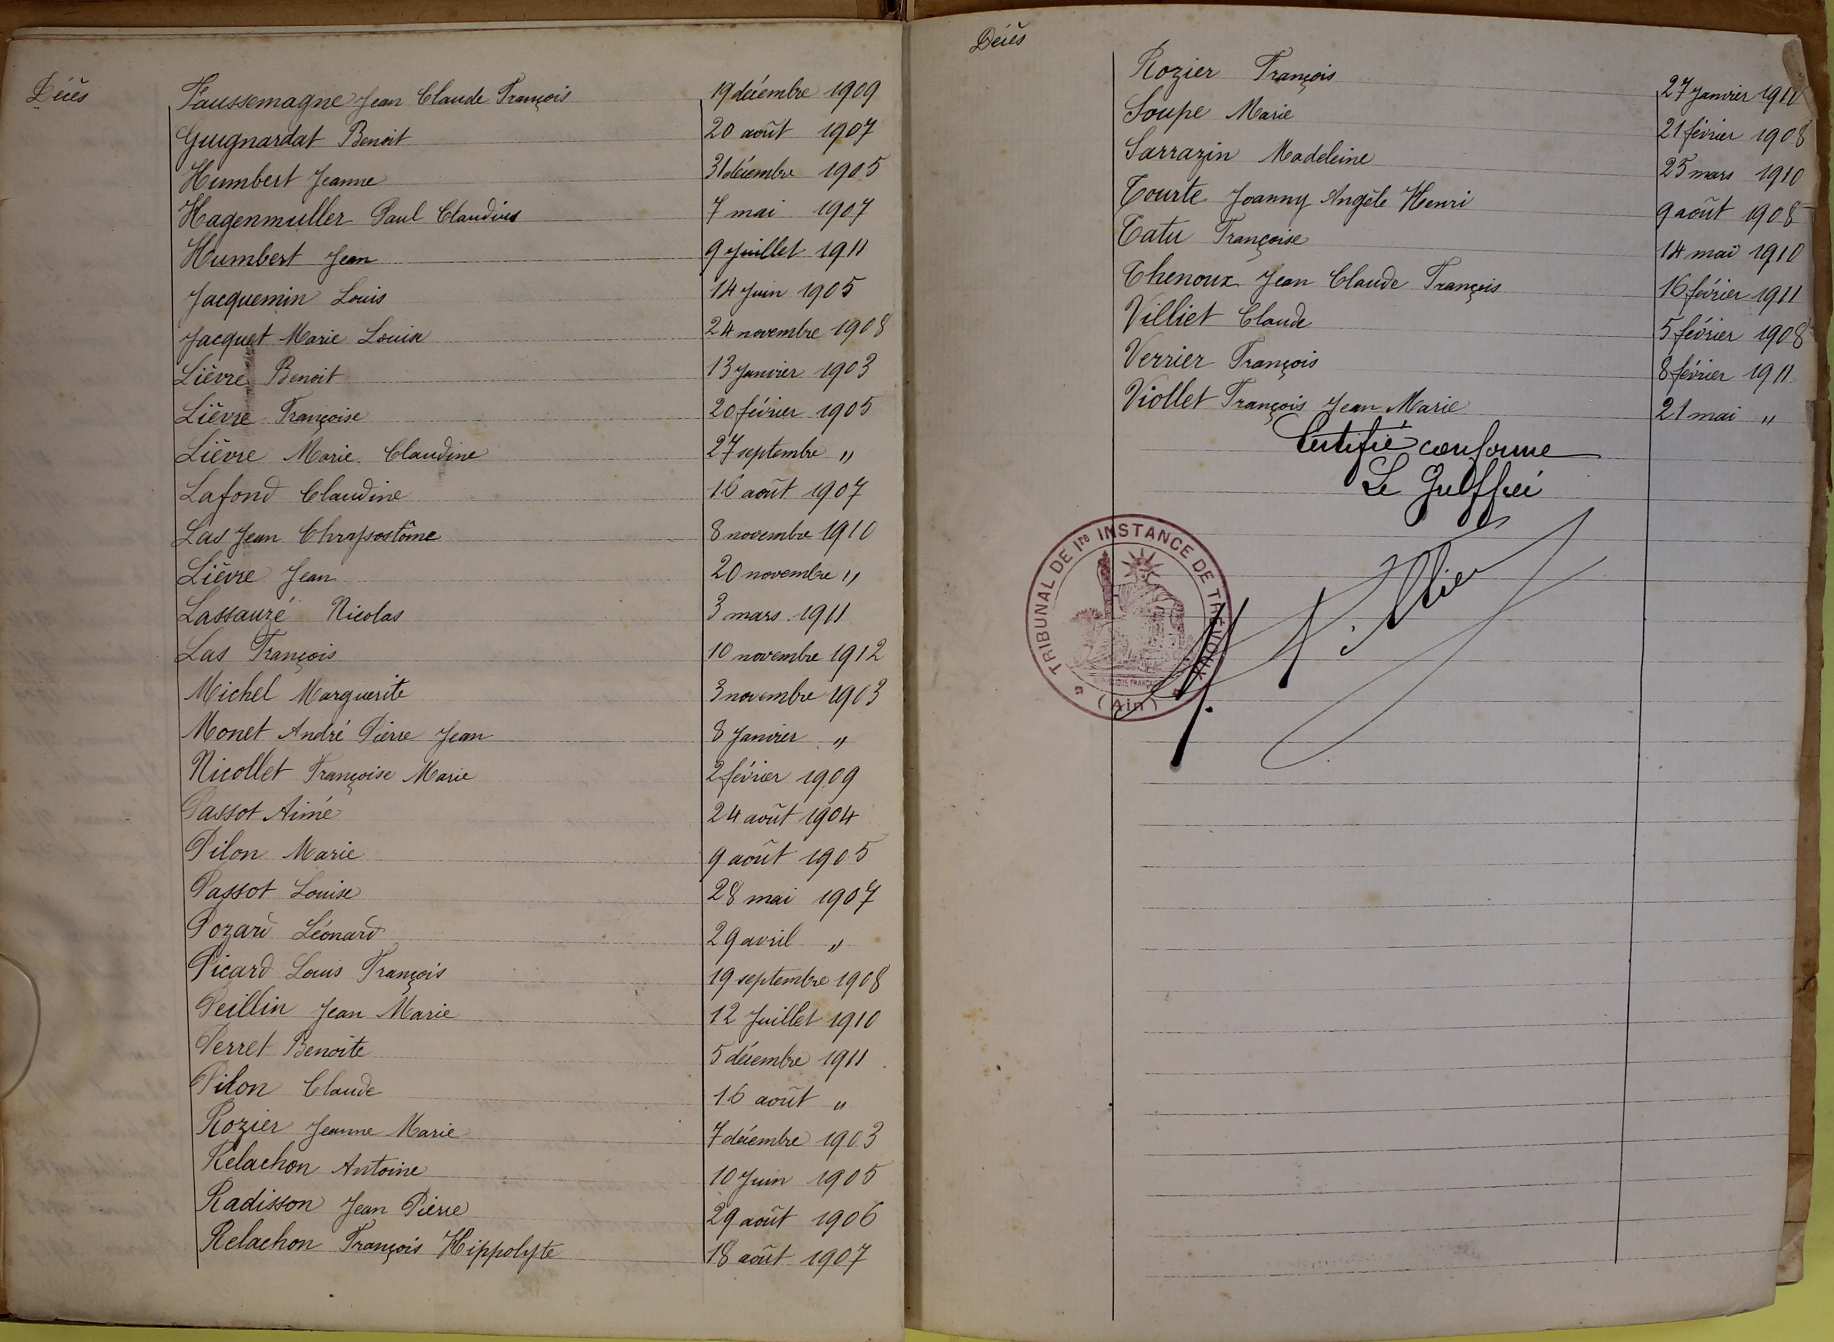 Décès
Faussemagne Jean Claude François 19 décembre 1909
Guignardat Benoit 20 août 1907
Humbert Jeanne 31 décembre 1905
Hagenmuller Paul Claudius 7 mai 1907
Humbert Jean 9 Juillet 1911
Jacquemin Louis 14 Juin 1905
Jacquet Marie Louise 24 novembre 1908
Lièvre Benoit 13 Janvier 1903
Lièvre Françoise 20 février 1905
Lièvre Marie Claudine 27 septembre "
Lafond Claudine 16 août 1907
Las Jean Chrysostôme 8 novembre 1910
Lièvre Jean 20 novembre "
Lassauzé Nicolas 3 mars 1911
Las François 10 novembre 1912
Michel Marguerite 3 novembre 1903
Monet André Pierre Jean 8 Janvier "
Nicollet Françoise Marie 2 février 1909
Passot Aimé 24 août 1904
Pilon Marie 9 août 1905
Passot Louise 28 mai 1907
Pozard Léonard 29 avril "
Picard Louis François 19 septembre 1908
Peillin Jean Marie 12 Juillet 1910
Perret Benoite 5 décembre 1911
Pilon Claude 16 août "
Rozier Jeanne Marie 7 décembre 1903
Relachon Antoine 10 Juin 1905
Radisson Jean Pierre 29 août 1906
Relachon François Hippolyte 18 août 1907
Décès
Rozier François 27 Janvier 1911
Soupe Marie 21 février 1908
Sarrazin Madeleine 25 mars 1910
Tourte Joanny Angèle Henri 9 août 1908
Tatu Françoise 14 mai 1910
Thenoux Jean Claude François 16 février 1911
Villiet Claude 5 février 1908
Verrier François 8 février 1911
Viollet François Jean Marie 21 mai "
Certifié conforme
Le Greffier
TRIBUNAL DE 1re INSTANCE DE TRÉVOUX
(Ain)